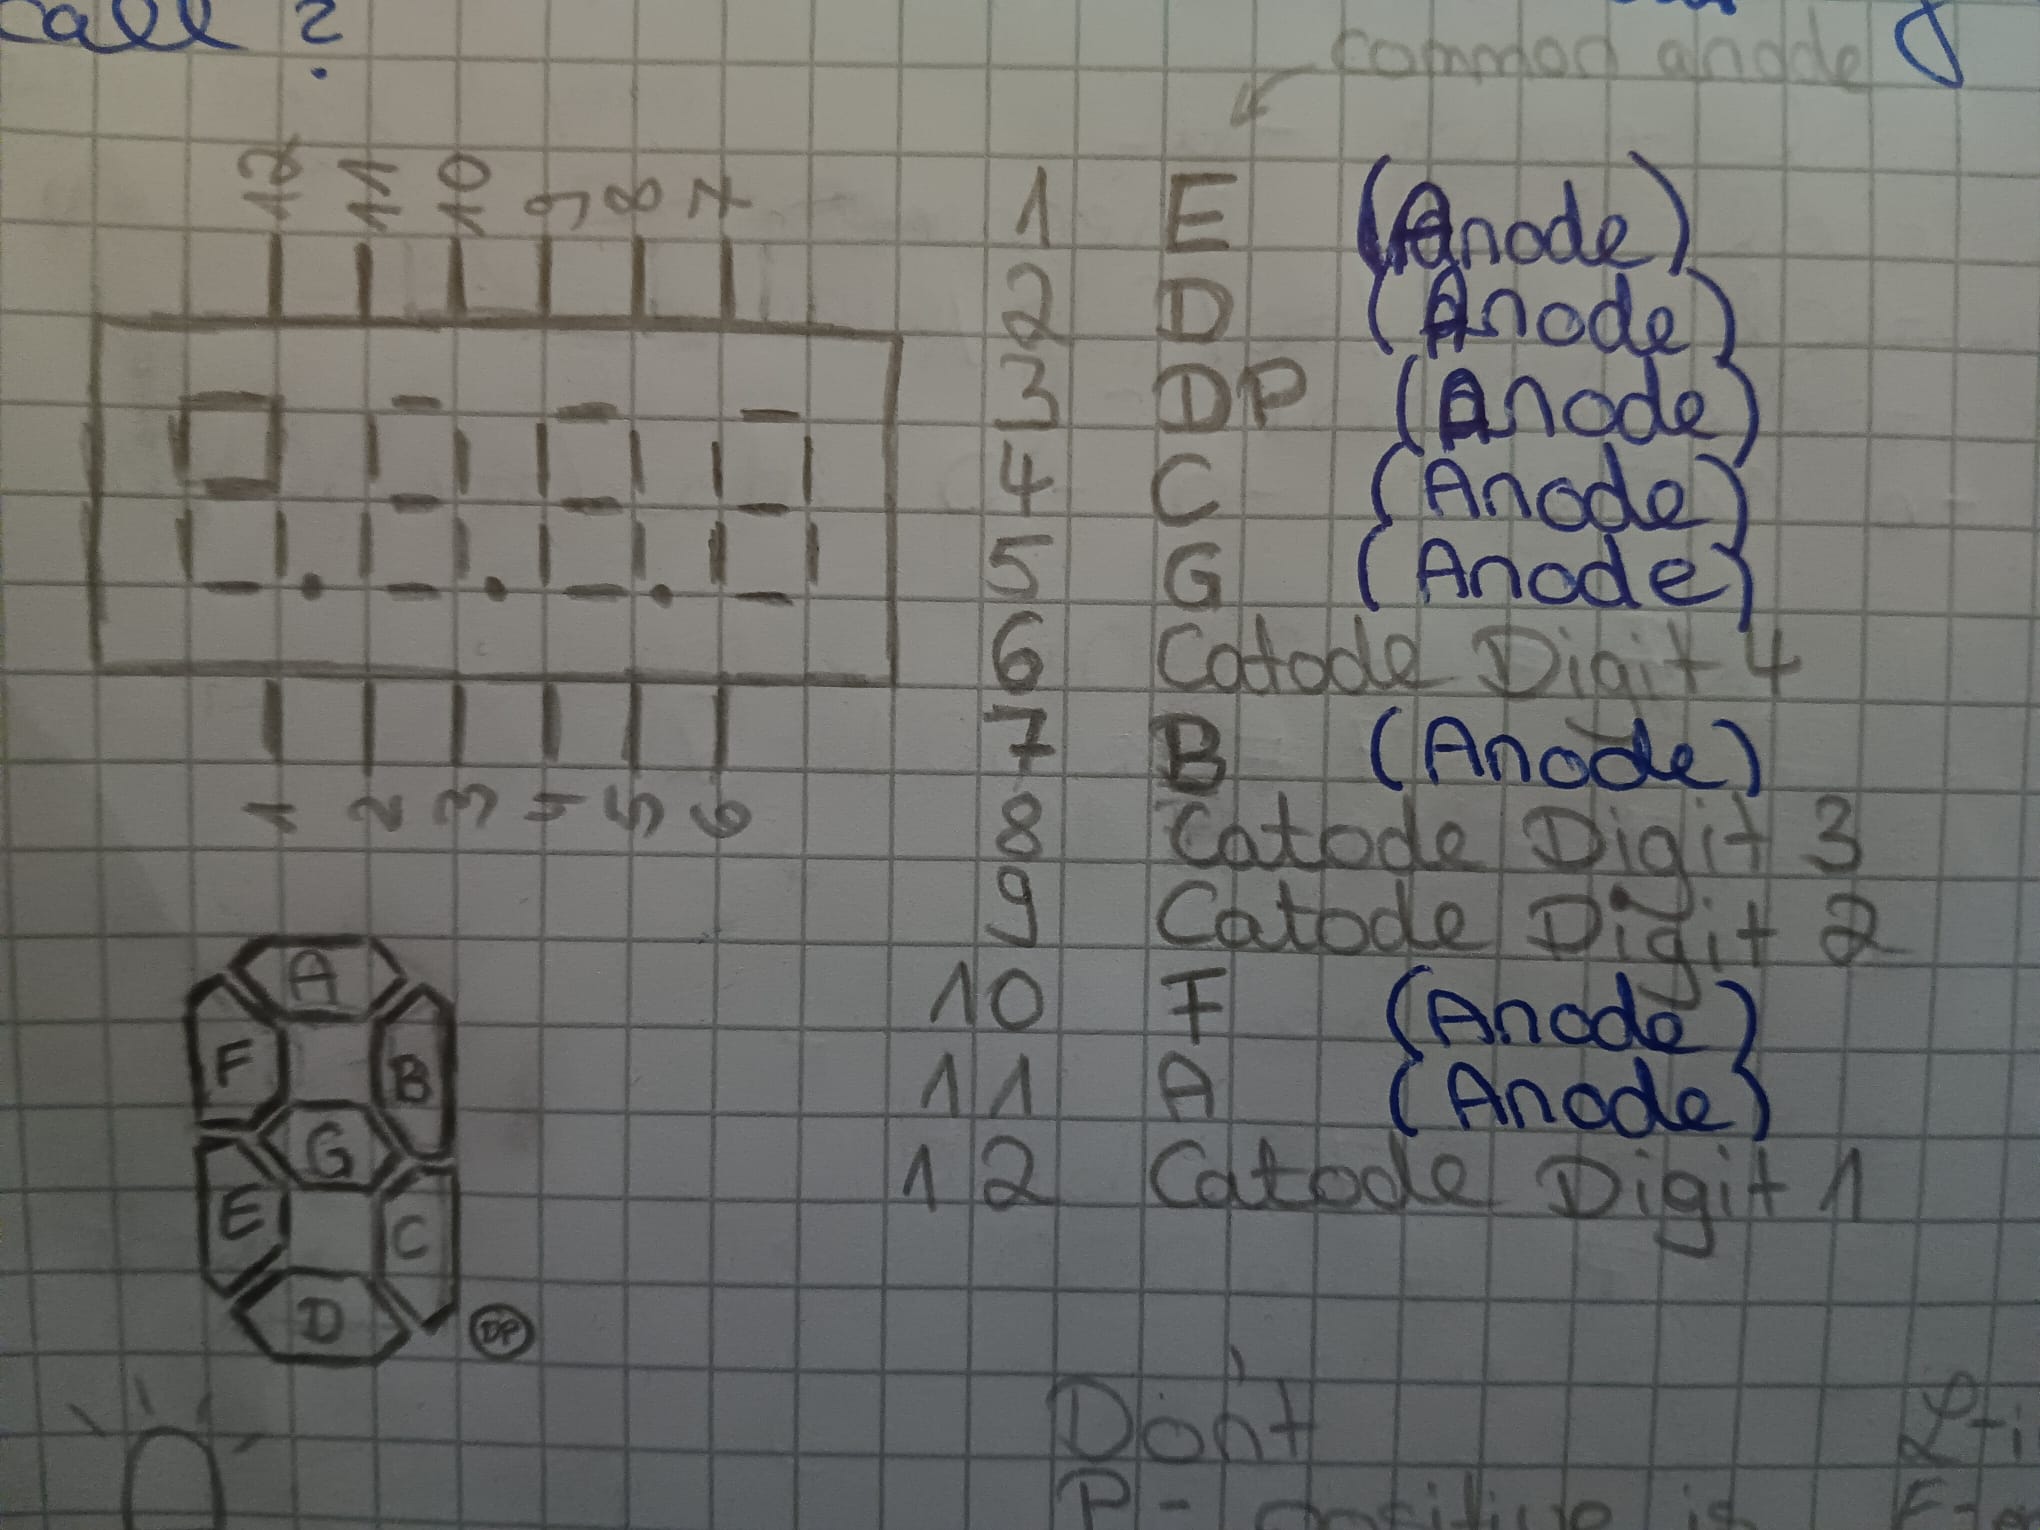 call?
common anode
12 11 10 9 8 7
1 2 3 4 5 6
1 E (Anode)
2 D (Anode)
3 DP (Anode)
4 C (Anode)
5 G (Anode)
6 Catode Digit 4
7 B (Anode)
8 Catode Digit 3
9 Catode Digit 2
10 F (Anode)
11 A (Anode)
12 Catode Digit 1
A
F B
G
E C
D DP
Don't
P - positive is